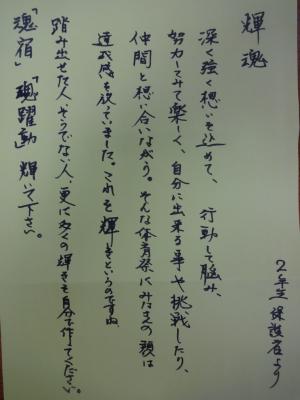 輝魂
深く強く想いを込めて、 行動して悩み、
努力してみて楽しく、自分に出来る事や挑戦したり、
仲間と想い合いながら。そんな体育祭にみなさまの顔は
達成感を放っていました。これを輝きというのですね
踏み出せた人、そうでない人、更に多くの輝きを自分で作ってください。
「魂宿」「魂躍動」輝いて下さい。
2年生 保護者より